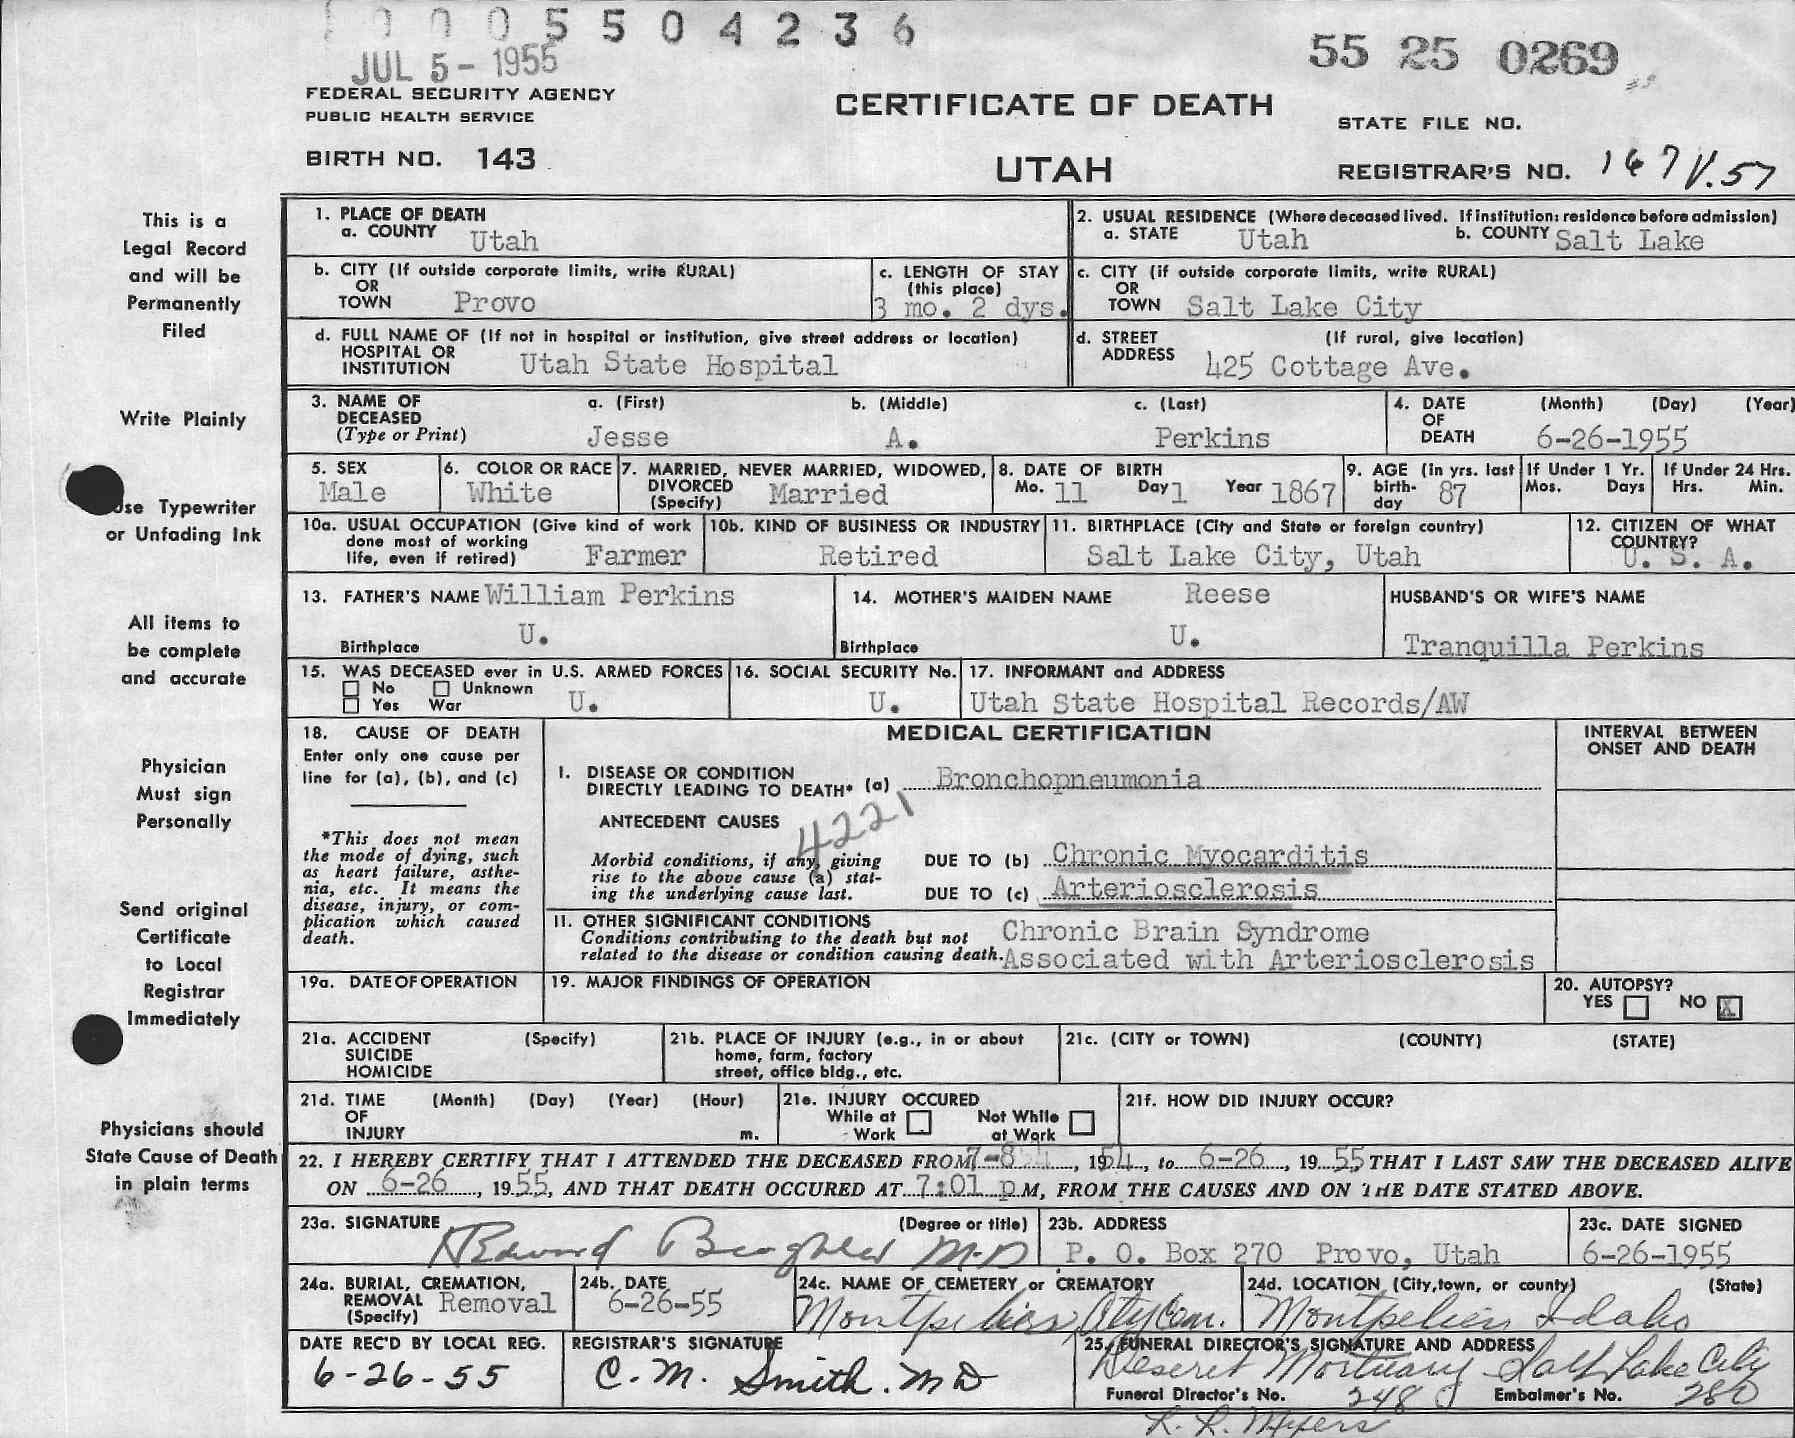 0005504236
JUL 5- 1955
55 25 0269
FEDERAL SECURITY AGENCY
PUBLIC HEALTH SERVICE
CERTIFICATE OF DEATH
STATE FILE NO.
BIRTH NO. 143
UTAH
REGISTRAR'S NO. 167 V.57
This is a
Legal Record
and will be
Permanently
Filed
Write Plainly
Use Typewriter
or Unfading Ink
All items to
be complete
and accurate
Physician
Must sign
Personally
Send original
Certificate
to Local
Registrar
Immediately
Physicians should
State Cause of Death
in plain terms
1. PLACE OF DEATH
a. COUNTY Utah
2. USUAL RESIDENCE (Where deceased lived. If institution: residence before admission)
a. STATE Utah b. COUNTY Salt Lake
b. CITY (If outside corporate limits, write RURAL)
OR
TOWN Provo
c. LENGTH OF STAY
(this place)
3 mo. 2 dys.
c. CITY (if outside corporate limits, write RURAL)
OR
TOWN Salt Lake City
d. FULL NAME OF (If not in hospital or institution, give street address or location)
HOSPITAL OR
INSTITUTION Utah State Hospital
d. STREET (If rural, give location)
ADDRESS 425 Cottage Ave.
3. NAME OF
DECEASED
(Type or Print)
a. (First)
Jesse
b. (Middle)
A.
c. (Last)
Perkins
4. DATE (Month) (Day) (Year)
OF
DEATH 6-26-1955
5. SEX
Male
6. COLOR OR RACE
White
7. MARRIED, NEVER MARRIED, WIDOWED,
DIVORCED
(Specify) Married
8. DATE OF BIRTH
Mo. 11 Day 1 Year 1867
9. AGE (in yrs. last
birth-
day 87
If Under 1 Yr.
Mos. Days
If Under 24 Hrs.
Hrs. Min.
10a. USUAL OCCUPATION (Give kind of work
done most of working
life, even if retired) Farmer
10b. KIND OF BUSINESS OR INDUSTRY
Retired
11. BIRTHPLACE (City and State or foreign country)
Salt Lake City, Utah
12. CITIZEN OF WHAT
COUNTRY?
U. S. A.
13. FATHER'S NAME William Perkins
Birthplace U.
14. MOTHER'S MAIDEN NAME Reese
Birthplace U.
HUSBAND'S OR WIFE'S NAME
Tranquilla Perkins
15. WAS DECEASED ever in U.S. ARMED FORCES
No Unknown
Yes War U.
16. SOCIAL SECURITY No.
U.
17. INFORMANT and ADDRESS
Utah State Hospital Records/AW
18. CAUSE OF DEATH
Enter only one cause per
line for (a), (b), and (c)
*This does not mean
the mode of dying, such
as heart failure, asthe-
nia, etc. It means the
disease, injury, or com-
plication which caused
death.
MEDICAL CERTIFICATION
INTERVAL BETWEEN
ONSET AND DEATH
I. DISEASE OR CONDITION
DIRECTLY LEADING TO DEATH* (a) Bronchopneumonia
ANTECEDENT CAUSES
4221
Morbid conditions, if any, giving
rise to the above cause (a) stat-
ing the underlying cause last.
DUE TO (b) Chronic Myocarditis
DUE TO (c) Arteriosclerosis
II. OTHER SIGNIFICANT CONDITIONS
Conditions contributing to the death but not
related to the disease or condition causing death.
Chronic Brain Syndrome
Associated with Arteriosclerosis
19a. DATE OF OPERATION
19. MAJOR FINDINGS OF OPERATION
20. AUTOPSY?
YES NO X
21a. ACCIDENT (Specify)
SUICIDE
HOMICIDE
21b. PLACE OF INJURY (e.g., in or about
home, farm, factory
street, office bldg., etc.
21c. (CITY or TOWN) (COUNTY) (STATE)
21d. TIME (Month) (Day) (Year) (Hour)
OF
INJURY m.
21e. INJURY OCCURED
While at Not While
Work at Work
21f. HOW DID INJURY OCCUR?
22. I HEREBY CERTIFY THAT I ATTENDED THE DECEASED FROM 7-8, 1954, to 6-26, 1955 THAT I LAST SAW THE DECEASED ALIVE
ON 6-26, 1955, AND THAT DEATH OCCURED AT 7:01 p M, FROM THE CAUSES AND ON THE DATE STATED ABOVE.
23a. SIGNATURE (Degree or title)
M-D
23b. ADDRESS
P. O. Box 270 Provo, Utah
23c. DATE SIGNED
6-26-1955
24a. BURIAL, CREMATION,
REMOVAL Removal
(Specify)
24b. DATE
6-26-55
24c. NAME OF CEMETERY or CREMATORY
Montpelier City Cem.
24d. LOCATION (City, town, or county) (State)
Montpelier Idaho
DATE REC'D BY LOCAL REG.
6-26-55
REGISTRAR'S SIGNATURE
C. M. Smith. MD
25. FUNERAL DIRECTOR'S SIGNATURE AND ADDRESS
Deseret Mortuary Salt Lake City
Funeral Director's No. 248 Embalmer's No. 280
L. R. Myers